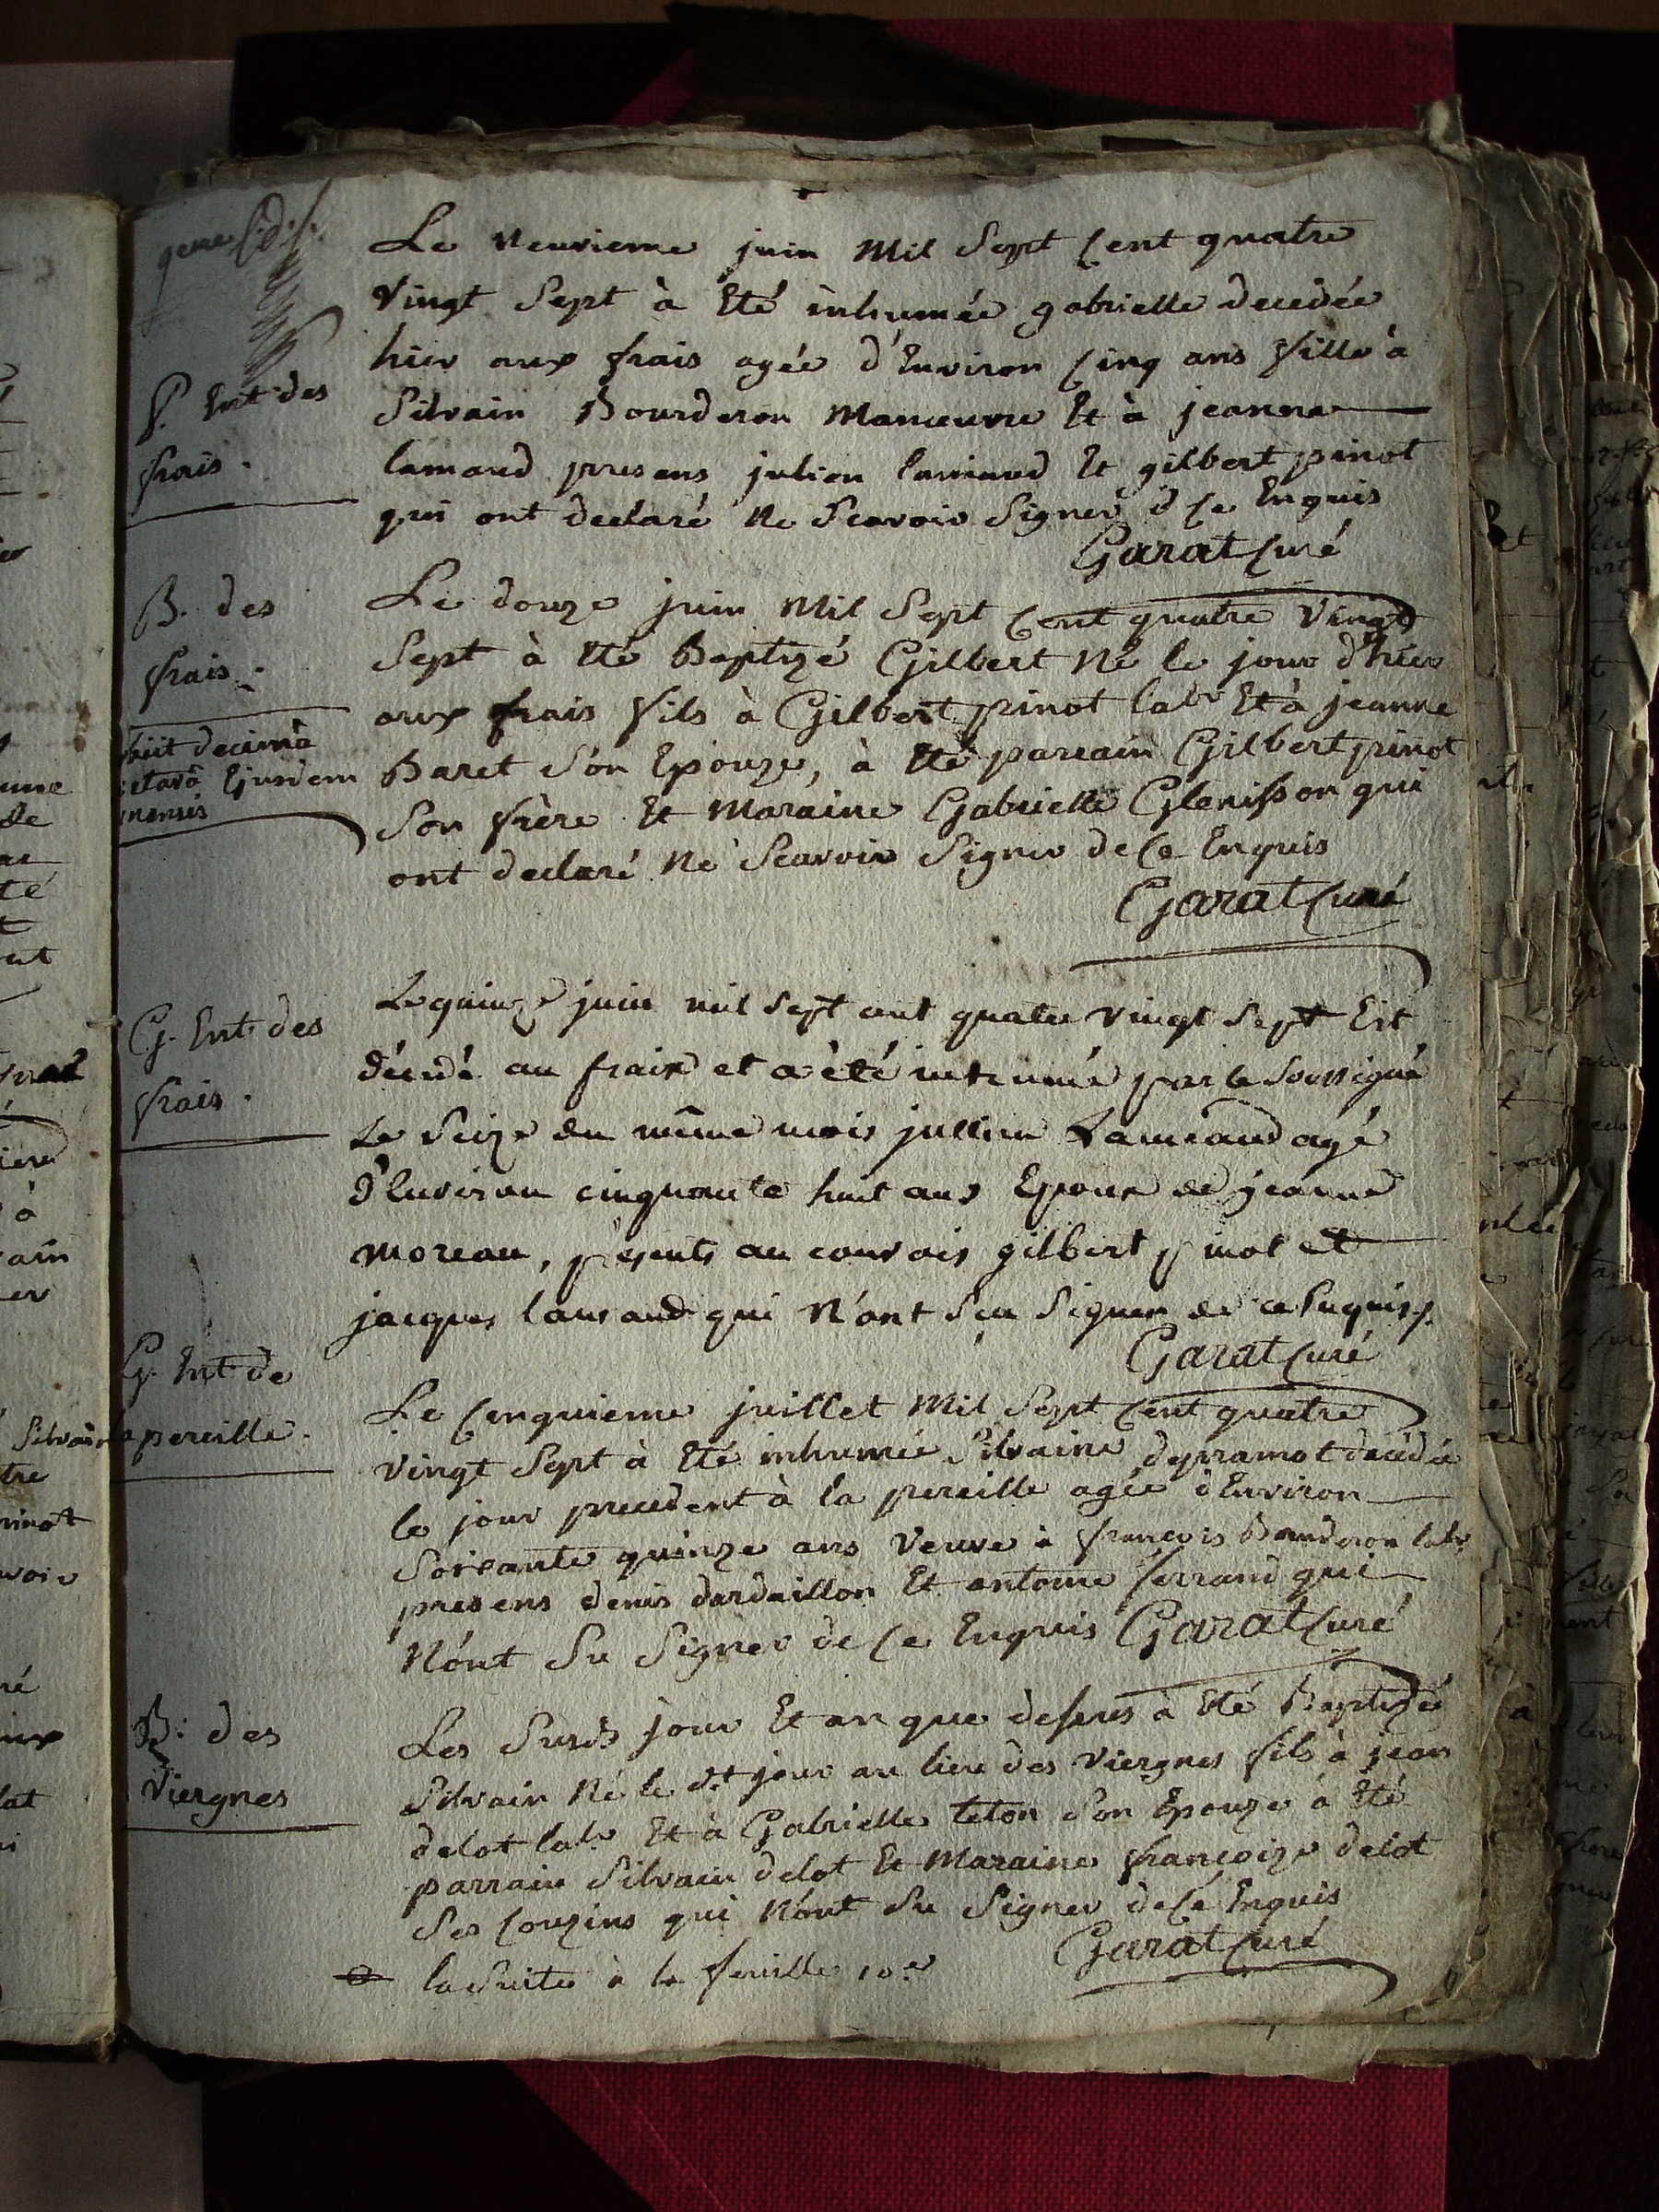 Le neuvieme juin mil Sept Cent quatre
vingt Sept à Eté inhumée gabrielle decedée
hier aux frais agée d'Environ Cinq ans fille à
P. Ent. des
frais.
Silvain Bourderon manœuvre Et à jeanne
lamaud presens julien lamaud Et gilbert pinot
qui ont declaré ne Scavoir Signer d Ce Enquis
Garat Curé
B. des
frais.
Le douze juin Mil Sept Cent quatre vingt
Sept à Eté Baptizé Gilbert Né le jour d'hier
aux frais fils à Gilbert pinot labr Et à jeanne
Baret Son Epouze, à Eté parrain Gilbert pinot
Son frère Et Maraine Gabrielle Glenisson qui
ont declaré Ne Scavoir Signer de Ce Enquis
Garat Curé
decimâ
octavâ Ejusdem
mensis
G. Ent. des
frais.
Le quinze juin mil Sept cent quatre vingt Sept Est
décédé au frais et a été inhumé par le Soussigné
Le Seize du même mois jullien Lameaud agé
d'Environ cinquante huit ans Epoux de jeanne
moreau, présents au convois gilbert pinot et
jacques lamaud qui N'ont Sçu Signer de ce Enquis
Garat Curé
G. Ent. de
la pereille.
Le Cinquieme juillet Mil Sept Cent quatre
vingt Sept à Eté inhumée Silvaine depramot décédée
le jour precedent à la pereille agée d'Environ
Soixante quinze ans veuve à françois Bourderon labr
presens denis dardaillon Et antoine ferrand qui
N'ont Su Signer de Ce Enquis Garat Curé
B. des
Viergnes
Les Susds jour Et an que dessus à Eté Baptizé
Silvain Né le dt jour au lieu des Viergnes fils à jean
delot labr Et à Gabrielle teton Son Epouze à Eté
parrain Silvain delot Et Maraine françoize delot
Ses Couzins qui N'ont Su Signer de Ce Enquis
Garat Curé
la Suite à la feuille 10e